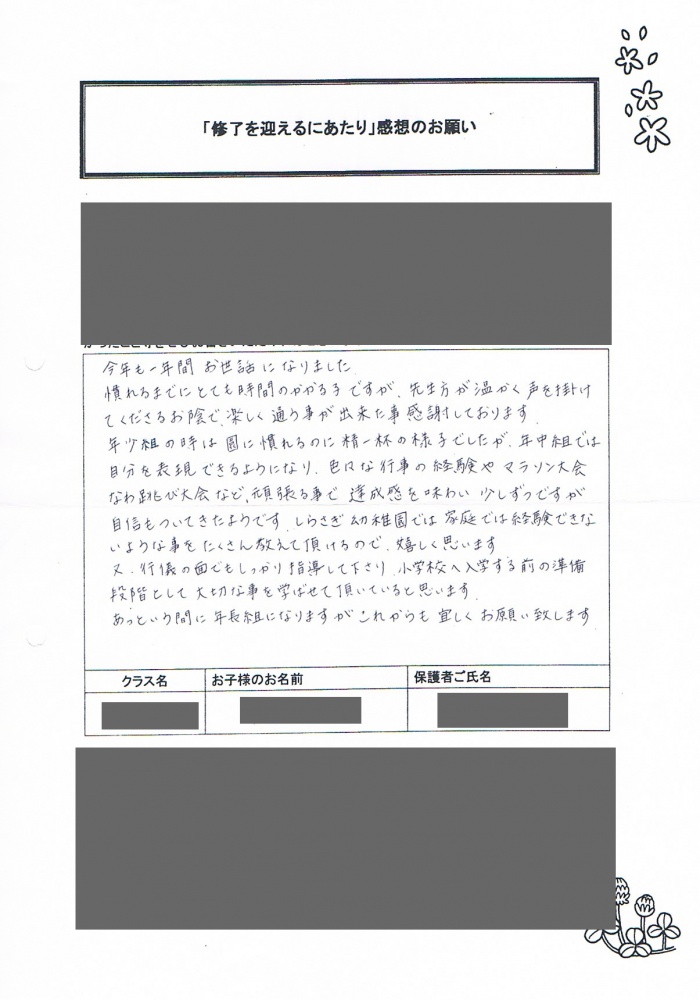 「修了を迎えるにあたり」感想のお願い
今年も一年間 お世話になりました
慣れるまでにとても時間のかかる子ですが、先生方が温かく声を掛け
てくださるお陰で、楽しく通う事が出来た事感謝しております
年少組の時は園に慣れるのに精一杯の様子でしたが、年中組では
自分を表現できるようになり、色々な行事の経験やマラソン大会
なわ跳び大会など、頑張る事で達成感を味わい少しずつですが
自信もついてきたようです。しらさぎ幼稚園では家庭では経験できな
いような事をたくさん教えて頂けるので、嬉しく思います
又、行儀の面でもしっかり指導して下さり、小学校へ入学する前の準備
段階として大切な事を学ばせて頂いていると思います。
あっという間に年長組になりますがこれからも宜しくお願い致します
クラス名 お子様のお名前 保護者ご氏名